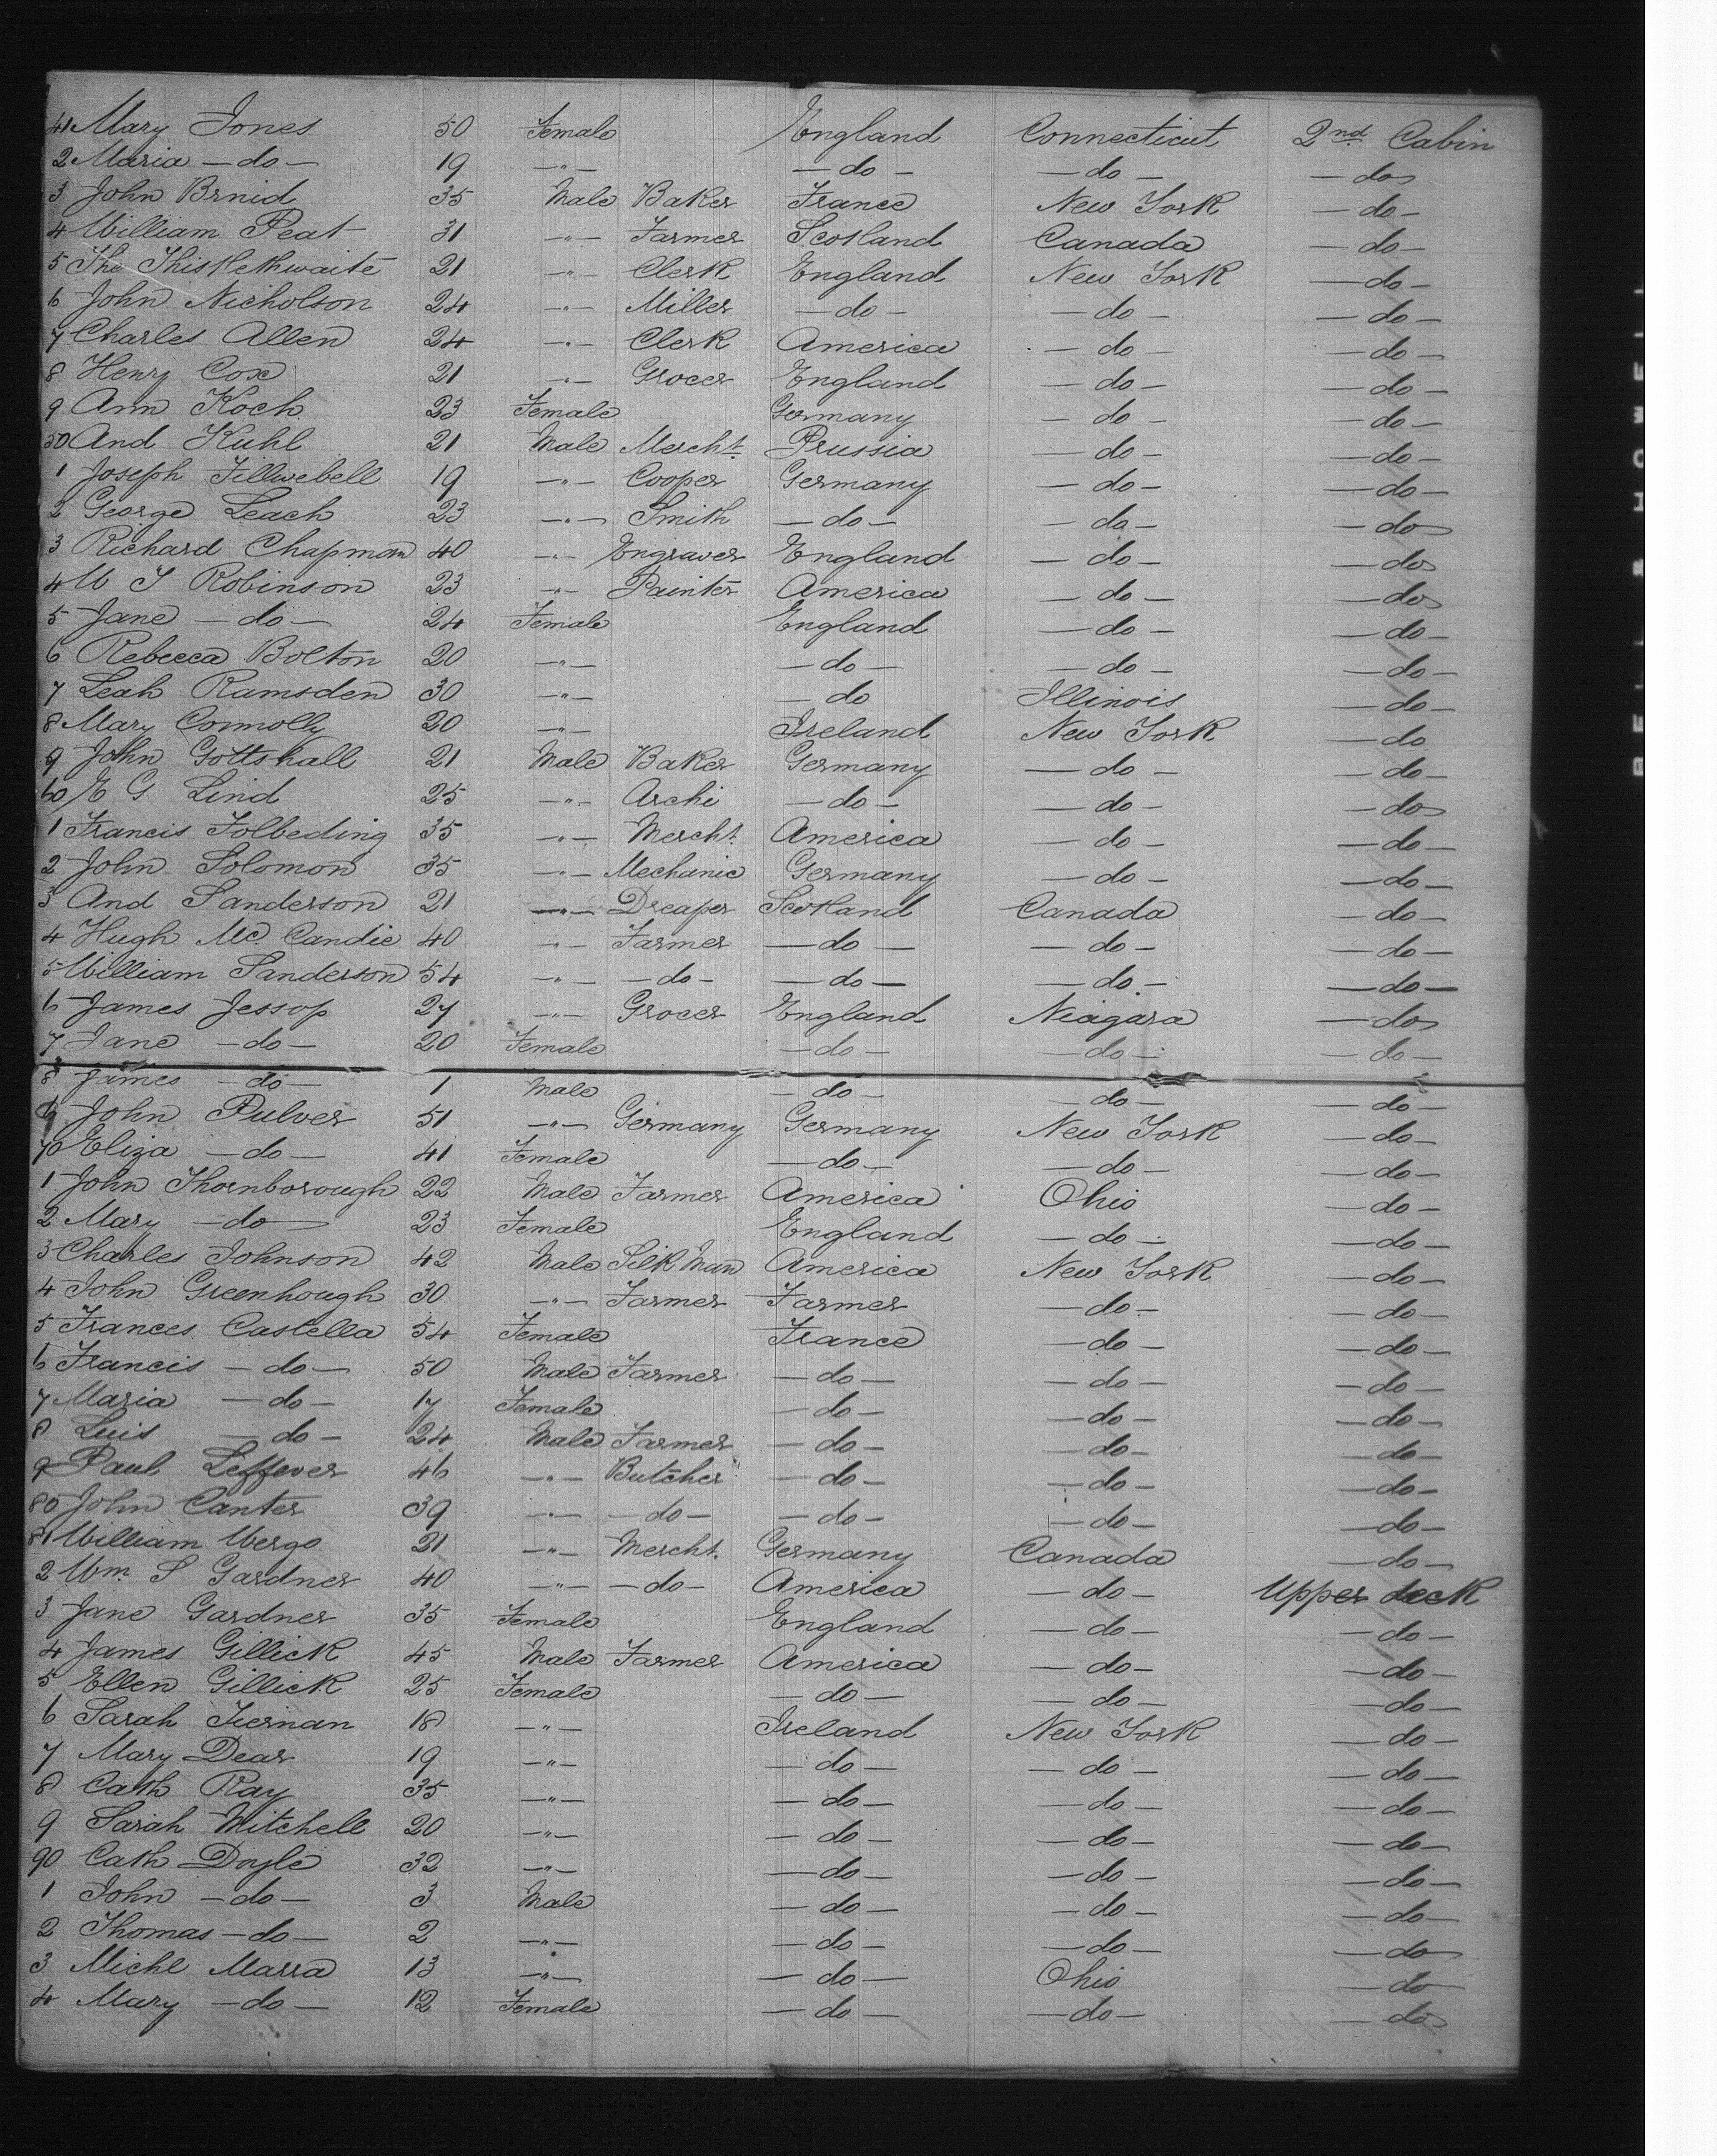 41 Mary Jones 50 Female England Connecticut 2nd Cabin
2 Maria - do - 19 - " - - do - - do - - do -
3 John Brnid 35 Male Baker France New York - do -
4 William Peat 31 - " - Farmer Scotland Canada - do -
5 Tho Thistlethwaite 21 - " - Clerk England New York - do -
6 John Nicholson 24 - " - Miller - do - - do - - do -
7 Charles Allen 24 - " - Clerk America - do - - do -
8 Henry Cox 21 - " - Grocer England - do - - do -
9 Ann Koch 23 Female Germany - do - - do -
50 And Kuhl 21 Male Mercht. Prussia - do - - do -
1 Joseph Fillwebell 19 - " - Cooper Germany - do - - do -
2 George Leach 23 - " - Smith - do - - do - - do -
3 Richard Chapman 40 - " - Engraver England - do - - do -
4 W T Robinson 23 - " - Painter America - do - - do -
5 Jane - do - 24 Female England - do - - do -
6 Rebecca Bolton 20 - " - - do - - do - - do -
7 Leah Ramsden 30 - " - - do Illinois - do -
8 Mary Connolly 20 - " - Ireland New York - do
9 John Gottshall 21 Male Baker Germany - do - - do -
60 E G Lind 25 - " - Archi - do - - do - - do -
1 Francis Folbeding 35 - " - Mercht. America - do - - do -
2 John Solomon 35 - " - Mechanic Germany - do - - do -
3 And Sanderson 21 - " - Dreaper Scotland Canada - do -
4 Hugh Mc. Candie 40 - " - Farmer - do - - do - - do -
5 William Sanderson 54 - " - - do - - do - - do - - do -
6 James Jessop 27 - " - Grocer England Niagara - do -
7 Jane - do - 20 Female - do - - do - - do -
8 James - do - 1 Male - do - - do - - do -
9 John Pulver 51 - " - Germany Germany New York - do -
70 Eliza - do - 41 Female - do - - do - - do -
1 John Thornborough 22 Male Farmer America Ohio - do -
2 Mary - do - 23 Female England - do - - do -
3 Charles Johnson 42 Male Silk Man America New York - do -
4 John Greenhough 30 - " - Farmer Farmer - do - - do -
5 Frances Castella 54 Female France - do - - do -
6 Francis - do - 50 Male Farmer - do - - do - - do -
7 Maria - do - 17 Female - do - - do - - do -
8 Luis - do - 24 Male Farmer - do - - do - - do -
9 Paul Leffever 46 - " - Butcher - do - - do - - do -
80 John Canter 39 - " - - do - - do - - do - - do -
81 William Wergo 21 - " - Mercht. Germany Canada - do -
2 Wm. S Gardner 40 - " - - do - America - do - Upper deck
3 Jane Gardner 35 Female England - do - - do -
4 James Gillick 45 Male Farmer America - do - - do -
5 Ellen Gillick 25 Female - do - - do - - do -
6 Sarah Tiernan 18 - " - Ireland New York - do -
7 Mary Dear 19 - " - - do - - do - - do -
8 Cath Ray 35 - " - - do - - do - - do -
9 Sarah Mitchell 20 - " - - do - - do - - do -
90 Cath Doyle 32 - " - - do - - do - - do -
1 John - do - 3 Male - do - - do - - do -
2 Thomas - do - 2 - " - - do - - do - - do -
3 Michl Marra 13 - " - - do - Ohio - do
4 Mary - do - 12 Female - do - - do - - do -